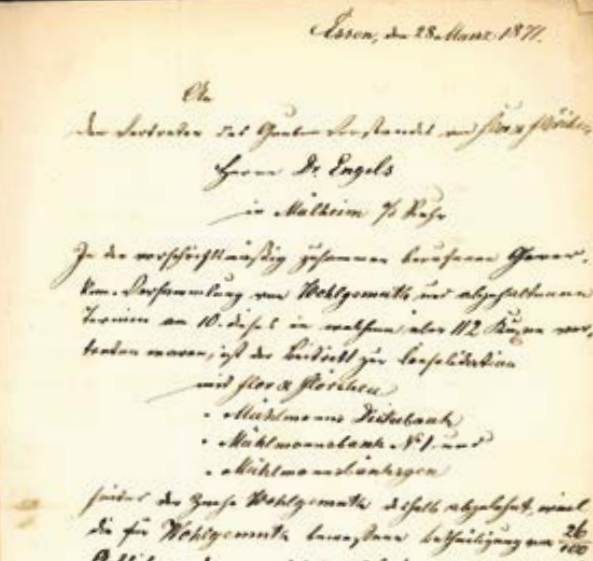 Essen, den 28. Maerz 1871.
An
den Vertreter des Gruben Vorstandes von Flor & Flörchen
Herrn Dr. Engels
in Mülheim a/d Ruhr
In der vorschriftmäßig zusammen berufenen Gewer-
ken-Versammlung von Wohlgemuth und abgehaltenen
Termine am 10. dess. in welchem über 112 Kuxe ver-
treten waren, ist der Beitritt zur Consolidation
mit Flor & Flörchen
" Mühlmanns Dickebank
" Mühlmannsbank No 1 und
" Mühlmannsbänksgen
seitens der Zeche Wohlgemuth deshalb abgelehnt, weil
die für Wohlgemuth bemessene Betheiligung von 26/100